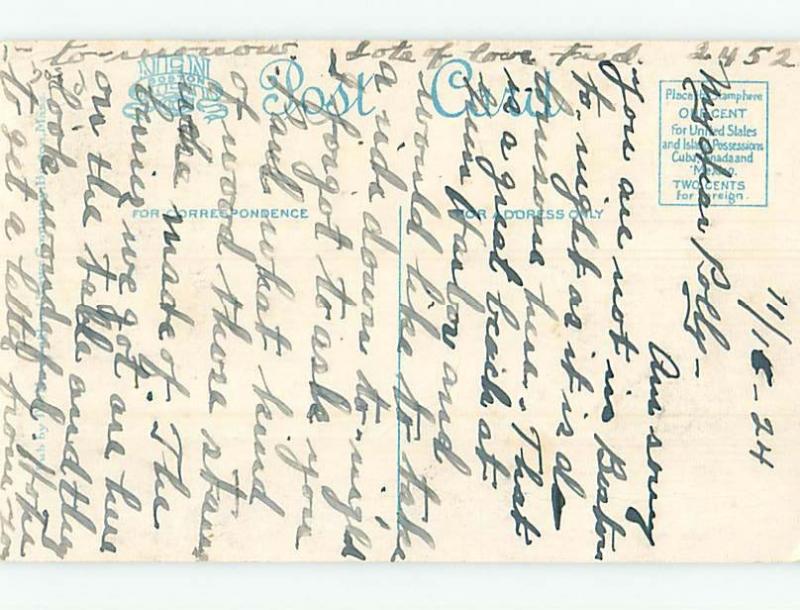 11/18-24
My dear Polly -
Am sorry
you are not in Boston
to-night as it is
lonesome here. That
is a great beach at
and
would like to take
a ride down to-night
I forgot to ask you
Paul what kind
of wood those
were made of. The
we got are here
on the table and they
look wonderful. Hope
to get a letter from you
to-morrow. Lots of love Fred.
2452
NEN
BOSTON
Post Card
FOR CORRESPONDENCE
FOR ADDRESS ONLY
Place Stamp here
ONE CENT
For United States
and Island Possessions
Cuba, Canada and
Mexico.
TWO CENTS
for Foreign.